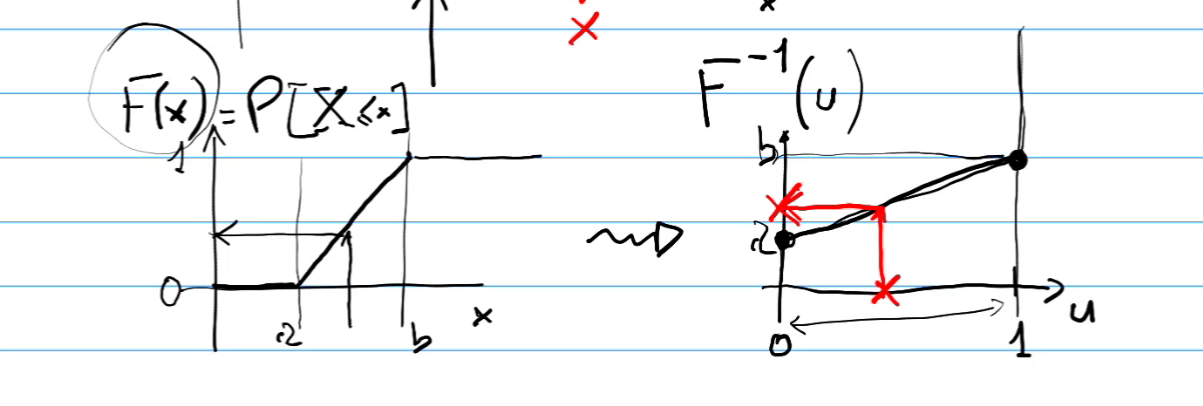 F(x) = P[X ≤ x]
1
0
a
b
x
F⁻¹(u)
b
a
0
1
u